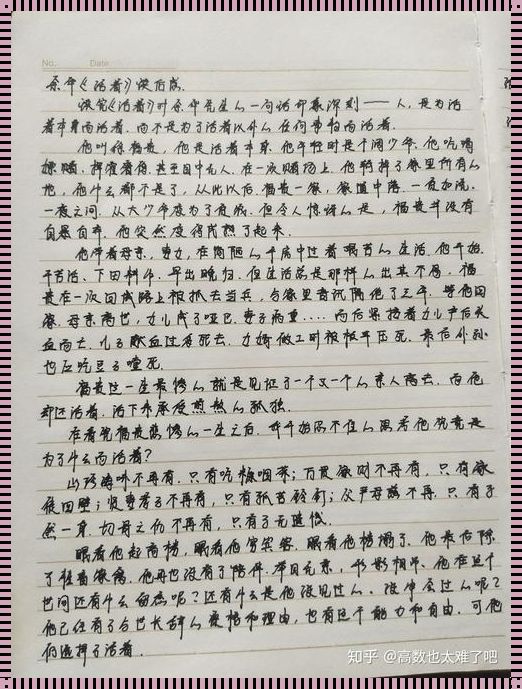 No. Date
余华《活着》读后感.
读完《活着》时余华先生的一句话印象深刻——人,是为活
着本身而活着,而不是为了活着以外的任何事物而活着.
他叫徐福贵,他是活着本身.他年轻时是个阔少爷,他吃喝
嫖赌,挥霍着得,甚至目中无人.在一次赌场上,他输掉了家里所有的
地,他什么都不是了,从此以后,福贵一家,家道中落,一夜如洗.
一夜之间,从大少爷变为了贫贱,但令人惊讶的是,福贵并没有
自暴自弃,他突然变得成熟了起来.
他带着母亲、妻、儿,在简陋的平房中过着艰苦的生活.他开始
干苦活、下田耕作、早出晚归.但生活总是那样的出其不意,福
贵在一次回城路上被抓去当兵,与家里音讯隔绝了三年,等他回
家,母亲离世,女儿成了哑巴,妻子病重....而后紧接着女儿产后大
血而亡,儿子献血过多死去,女婿做工时被板平压死.最后外孙
也应吃豆子噎死.
福贵这一生最惨的就是见证了一个又一个的亲人离去,而他
却还活着,活下来承受煎熬的孤独.
在看完福贵悲惨的一生之后,我开始忍不住的思考他究竟是
为了什么而活着?
山珍海味不再有,只有吃糠咽菜;万贯家财不再有,只有家
徒四壁;贤妻孝子不再有,只有孤苦伶仃;父严母慈不再,只有孑
然一身.切母之仇不再有,只有了无遗憾.
眼看他起高楼,眼看他宴宾客,眼看他楼塌了.他最后除
了祖着家离,他再也没有了陪伴,举目无亲,形影相吊.他在这个
世间还有什么留恋呢?还有什么是他没见过的,没体会过的呢?
他已经有了与世长辞的资格和理由,也有这个能力和自由.可他
们选择了活着.
知乎 @高数也太难了吧